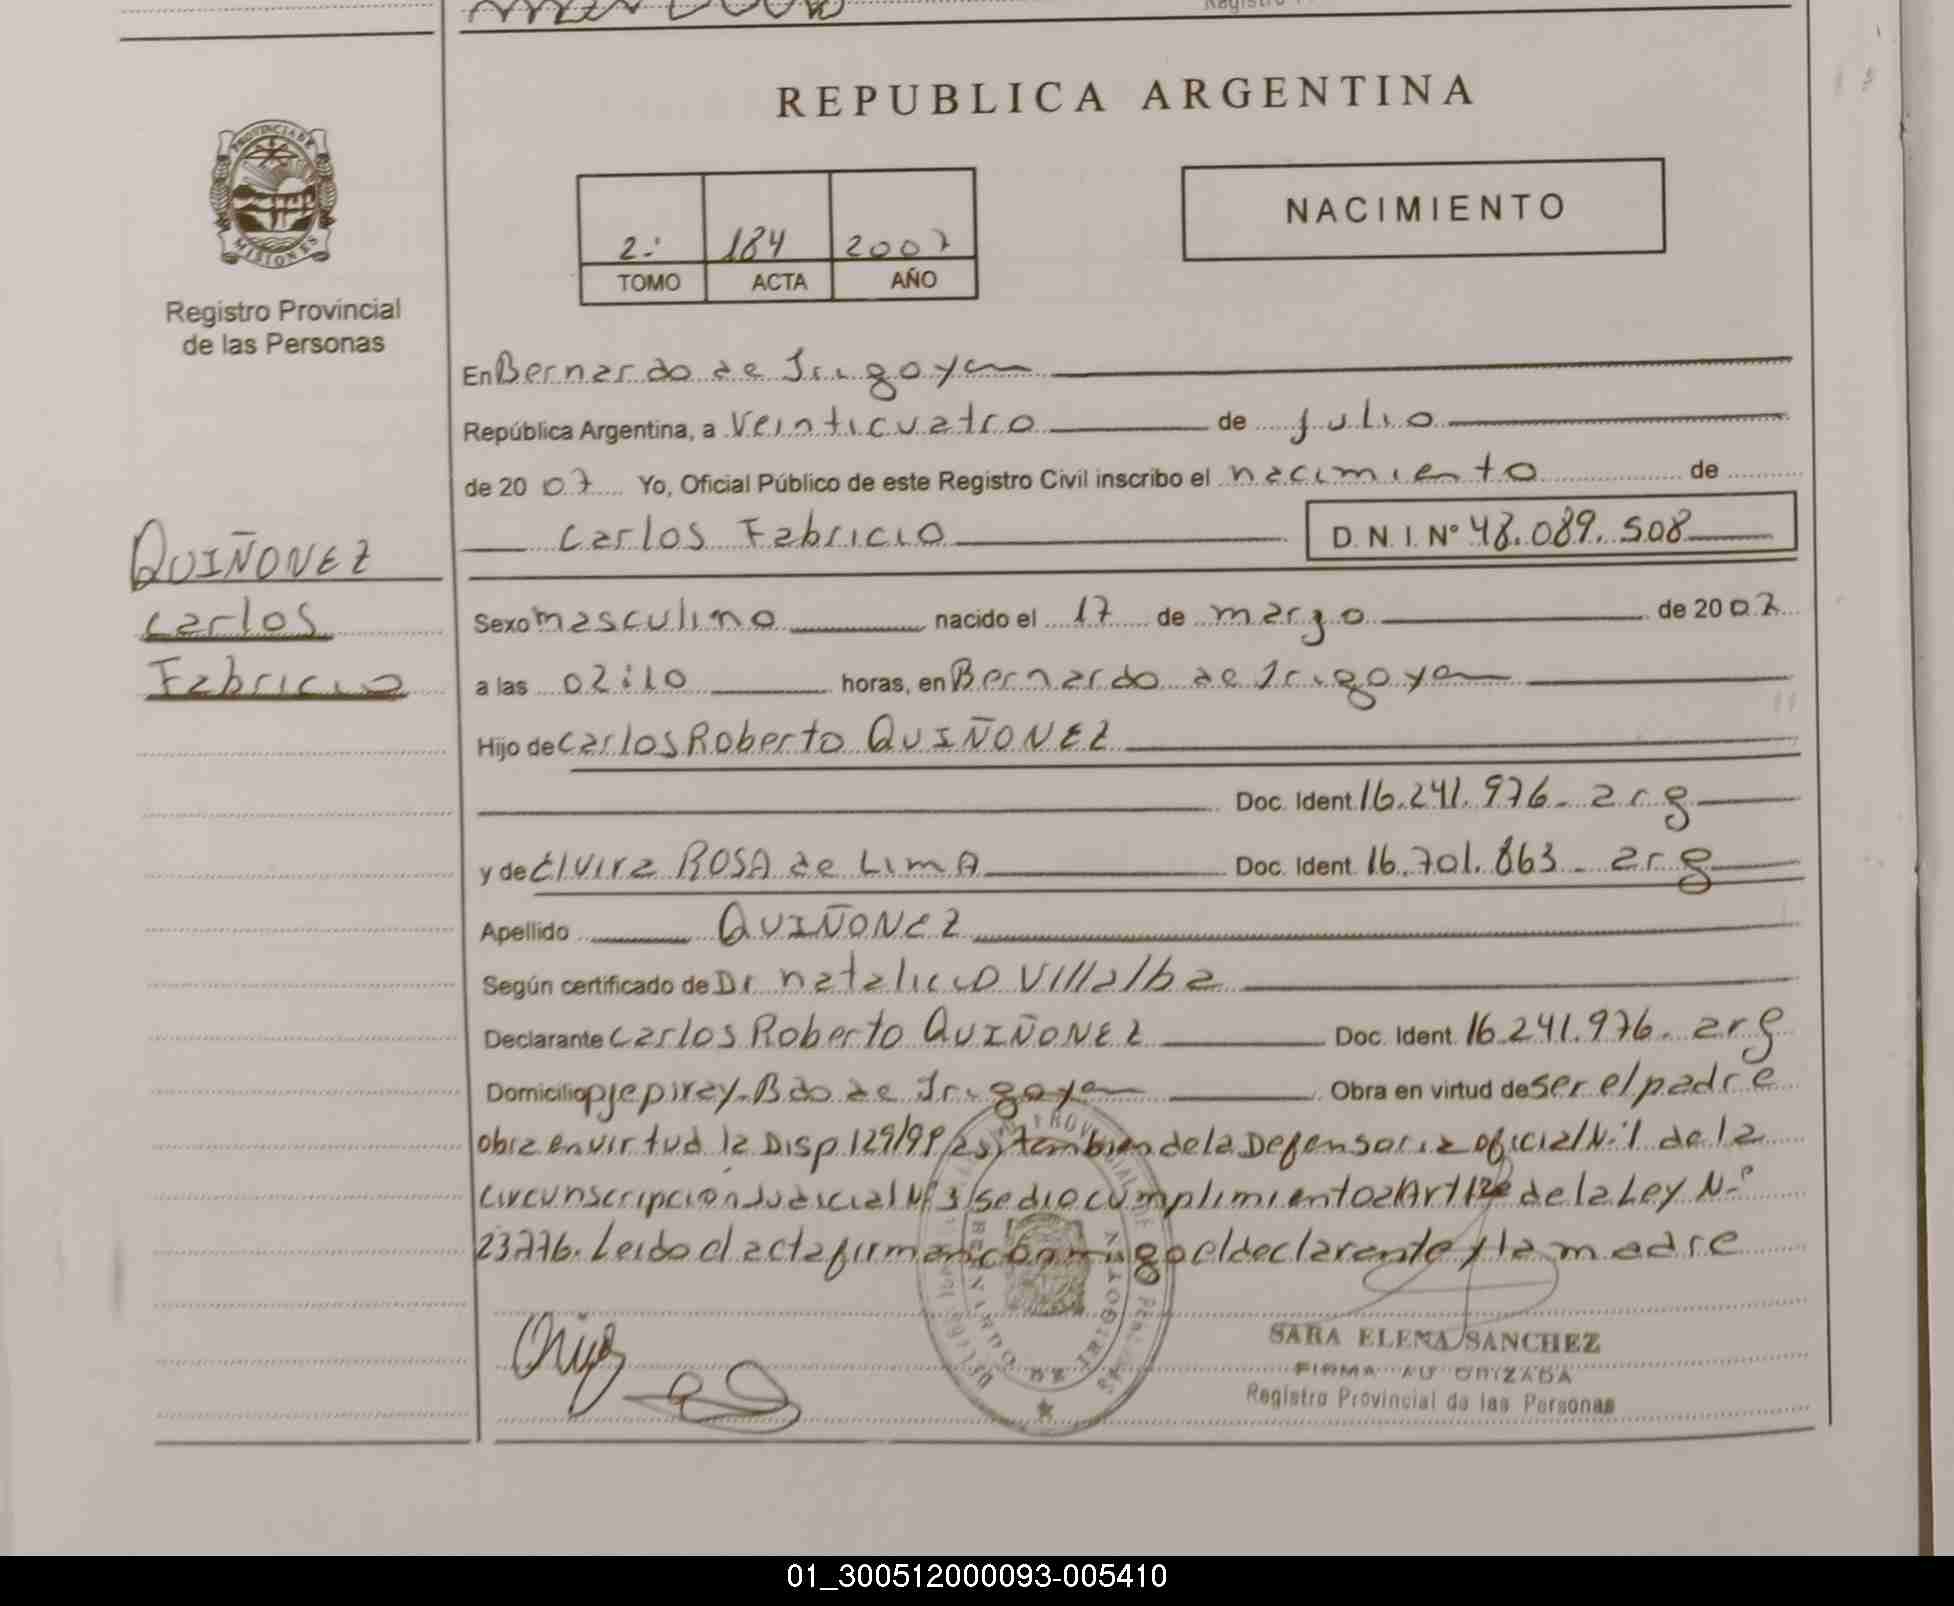 REPUBLICA ARGENTINA
PROVINCIA DE
MISIONES
Registro Provincial
de las Personas
2º 184 2007
TOMO ACTA AÑO
NACIMIENTO
En Bernardo de Irigoyen
República Argentina, a Veinticuatro de julio
de 2007 Yo, Oficial Público de este Registro Civil inscribo el nacimiento de
Carlos Fabricio D. N. I. Nº 48.089.508
QUIÑONEZ
Carlos
Fabricio
Sexo masculino nacido el 17 de marzo de 2007
a las 02:10 horas, en Bernardo de Irigoyen
Hijo de Carlos Roberto QUIÑONEZ
Doc. Ident. 16.241.976- arg
y de Elvira ROSA de LIMA Doc. Ident. 16.701.863- arg
Apellido QUIÑONEZ
Según certificado de Dr natalicio Villalba
Declarante Carlos Roberto QUIÑONEZ Doc. Ident. 16.241.976- arg
Domicilio pje piray-Bdo de Irigoyen Obra en virtud de ser el padre
obra en virtud la Disp 129/99 también de la Defensoria oficial Nº 1 de la
circunscripción Judicial Nº 3 se dio cumplimiento al Art 12 de la Ley Nº
23776. Leido el acta firman conmigo el declarante y la madre
SARA ELENA SANCHEZ
FIRMA AUTORIZADA
Registro Provincial de las Personas
01_300512000093-005410